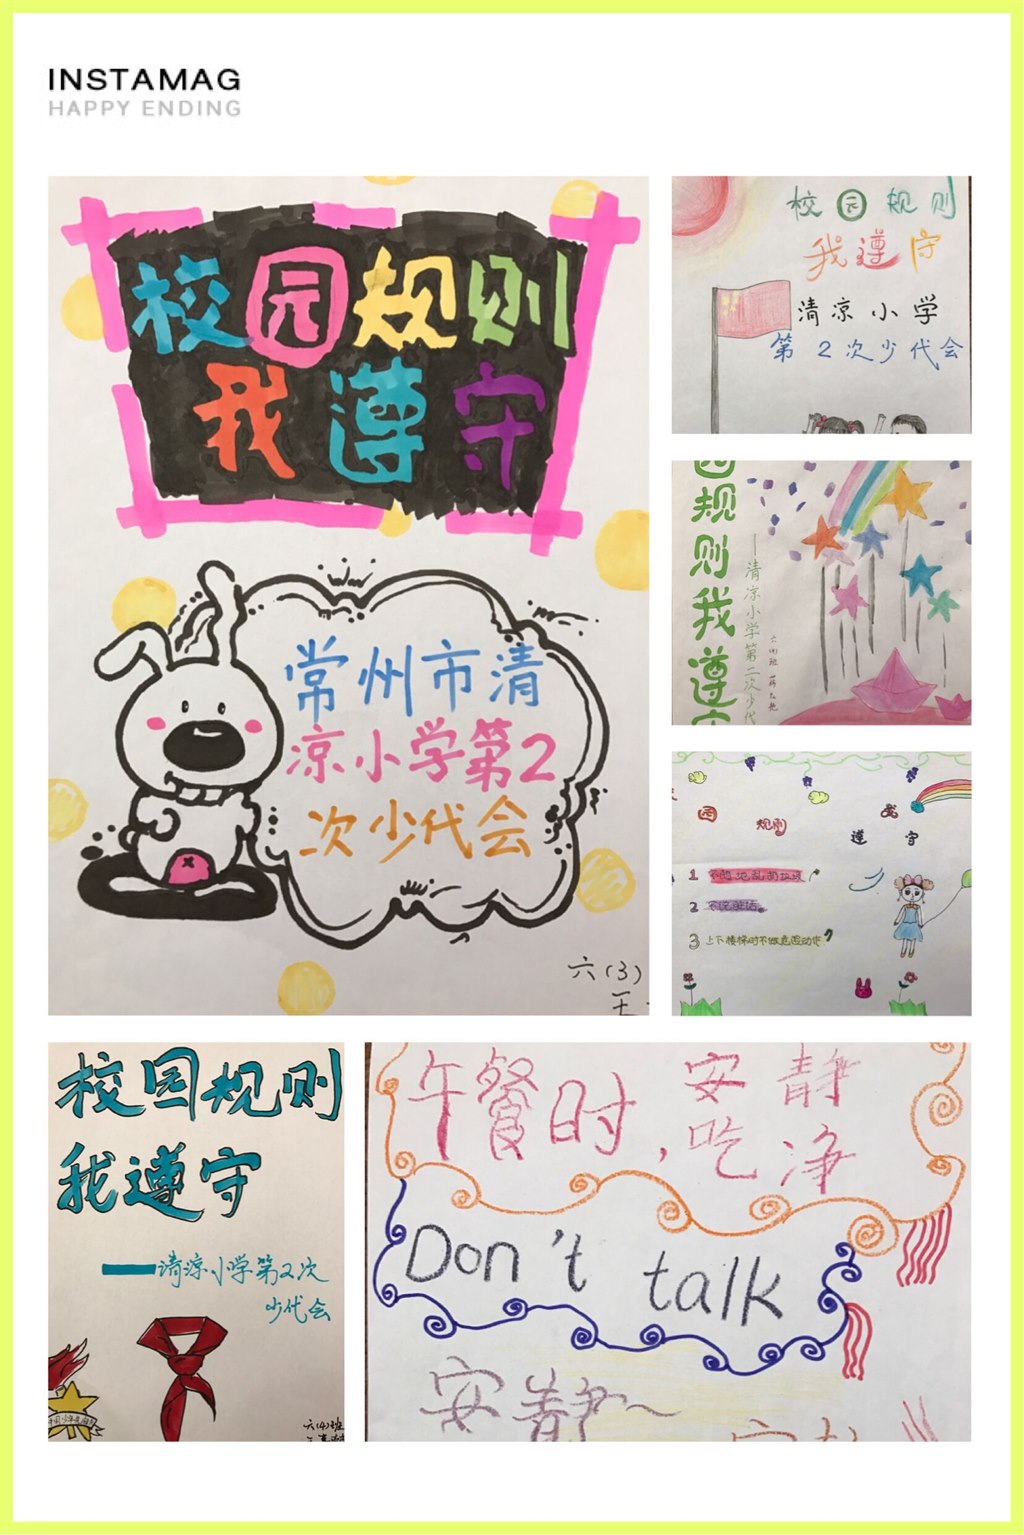 INSTAMAG
HAPPY ENDING
校园规则
我遵守
常州市清
凉小学第2
次少代会
六(3)
王
校园规则
我遵守
清凉小学
第2次少代会
园规则我遵守
——清凉小学第二次少代
六(4)班
园 规则 我 遵 守
1 不随地乱扔垃圾
2 不说脏话
3 上下楼梯时不做危险动作
校园规则
我遵守
——清凉小学第2次
少代会
六(4)班
午餐时,安静
吃净
Don't talk
安静~